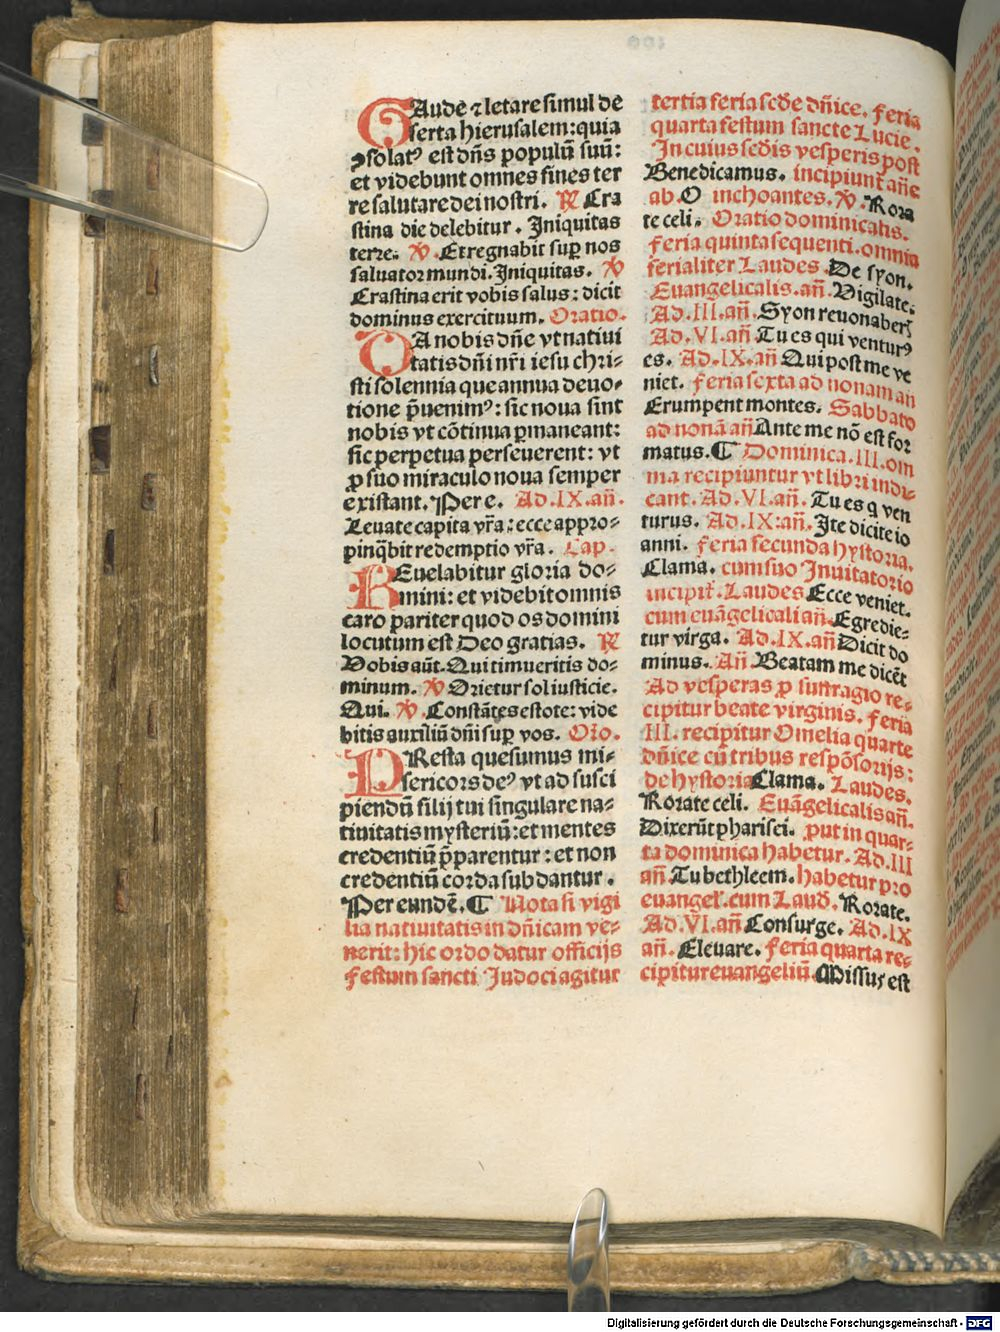 GAude ⁊ letare simul de
serta hierusalem: quia
ↄsolatꝰ est dn̄s populū suū:
et videbunt omnes fines ter
re salutare dei nostri. ℟ Cra
stina die delebitur. Iniquitas
terre. ℣. Et regnabit suꝑ nos
saluator mundi. Iniquitas. ℣
Crastina erit vobis salus: dicit
dominus exercituum. Oratio.
DA nobis dn̄e vt natiui
tatis dn̄i nr̄i iesu chri⸗
sti solennia que annua deuo⸗
tione p̄uenimꝰ: sic noua sint
nobis vt cōtinua ꝑmaneant:
sic perpetua perseuerent: vt
ꝓ suo miraculo noua semper
existant. Per e. Ad .IX. an̄.
Leuate capita vr̄a: ecce appro⸗
pinq̄bit redemptio vr̄a. Cap.
REuelabitur gloria do⸗
mini: et videbit omnis
caro pariter quod os domini
locutum est Deo gratias. ℟
Vobis aūt. Qui timueritis do⸗
minum. ℣ Orietur sol iusticie.
Qui. ℣. Constātes estote: vide
bitis auxiliū dn̄i suꝑ vos. Oro.
PResta quesumus mi⸗
sericors deꝰ vt ad susci
piendū filij tui singulare na⸗
tiuitatis mysteriū: et mentes
credentiū p̄parentur: et non
credentiū corda subdantur.
Per eundē. ¶ Nota si vigi
lia natiuitatis in dn̄icam ve⸗
nerit: hic ordo datur officijs
festum sancti Judoci agitur
tertia feria scd̄e dn̄ice. feria
quarta festum sancte Lucie.
In cuius scd̄is vesperis post
Benedicamus. incipiunt an̄e
ab. O inchoantes. ℣. Rora
te celi. Oratio dominicalis.
feria quinta sequenti. omnia
ferialiter Laudes. De syon.
Euangelicalis. an̄. Vigilate.
Ad .III. an̄. Syon renouaberꝭ
Ad .VI. an̄ Tu es qui venturꝰ
es. Ad .IX. an̄ Qui post me ve
niet. feria sexta ad nonam an̄
Erumpent montes. Sabbato
ad nonā an̄ Ante me nō est for
matus. ¶ Dominica .III. om
nia recipiuntur vt libri indi⸗
cant. Ad .VI. an̄. Tu es q ven
turus. Ad .IX. an̄. Ite dicite io
anni. feria secunda hystoria.
Clama. cum suo Inuitatorio
incipit̄. Laudes Ecce veniet.
cum euāgelicali an̄. Egredie⸗
tur virga. Ad .IX. an̄ Dicit do
minus. An̄. Beatam me dicēt
Ad vesperas ꝓ suffragio re⸗
cipitur beate virginis. feria
III. recipitur Omelia quarte
dn̄ice cū tribus respōsorijs:
de hystoria Clama. Laudes.
Rorate celi. Euāgelicalis an̄.
Dixerūt pharisei. put in quar⸗
ta dominica habetur. Ad .III
an̄. Tu bethleem. habetur pro
euangel̄. cum Laud̄. Rorate.
Ad .VI. an̄ Consurge. Ad .IX
an̄. Eleuare. feria quarta re⸗
cipitur euangeliū. Missus est
Digitalisierung gefördert durch die Deutsche Forschungsgemeinschaft - DFG